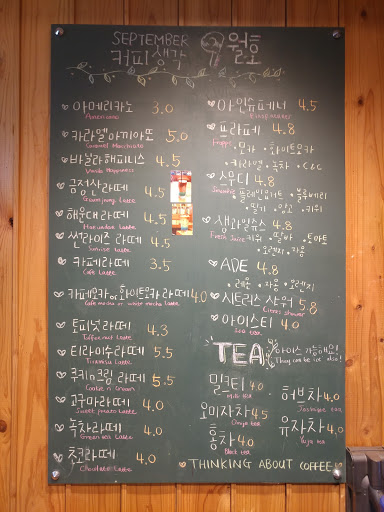 SEPTEMBER
커피생각 9월호
아메리카노 3.0
Americano
카라멜 마끼아또 5.0
Caramel Macchiato
바닐라해피니스 4.5
Vanilla Happiness
금정산라떼 4.5
Geumjung Latte
해운대라떼 4.5
Haeundae Latte
썬라이즈 라떼 4.5
Sunrise Latte
카페라떼 3.5
Cafe Latte
카페모카 or 화이트모카 라떼 4.0
Cafe mocha or white mocha Latte
토피넛라떼 4.3
Toffee nut Latte
티라미수라떼 5.5
Tiramisu Latte
쿠키&크림 라떼 5.5
Cookie n Cream
고구마라떼 4.0
Sweet potato Latte
녹차라떼 4.0
Green tea Latte
초코라떼 4.0
Chocolate Latte
아인슈페너 4.5
Einspanner
프라페 4.8
Frappe
모카 · 화이트모카
· 카라멜 · 녹차 · C&C
스무디 4.8
Smoothie 플레인요거트 · 블루베리
· 딸기 · 망고 · 키위
생과일쥬스 4.8
Fresh Juice 키위 · 딸바 · 토마토
· 오렌지 · 자몽
ADE 4.8
· 레몬 · 자몽 · 오렌지
시트러스 샤워 5.8
Citrus shower
아이스티 4.0
Ice tea
TEA 아이스 가능해요!
They can be ice also!
밀크티 4.0
Milk tea
허브차 4.0
오미자차 4.5
Omija tea
유자차 4.0
Yuja tea
홍차 4.0
Black tea
THINKING ABOUT COFFEE